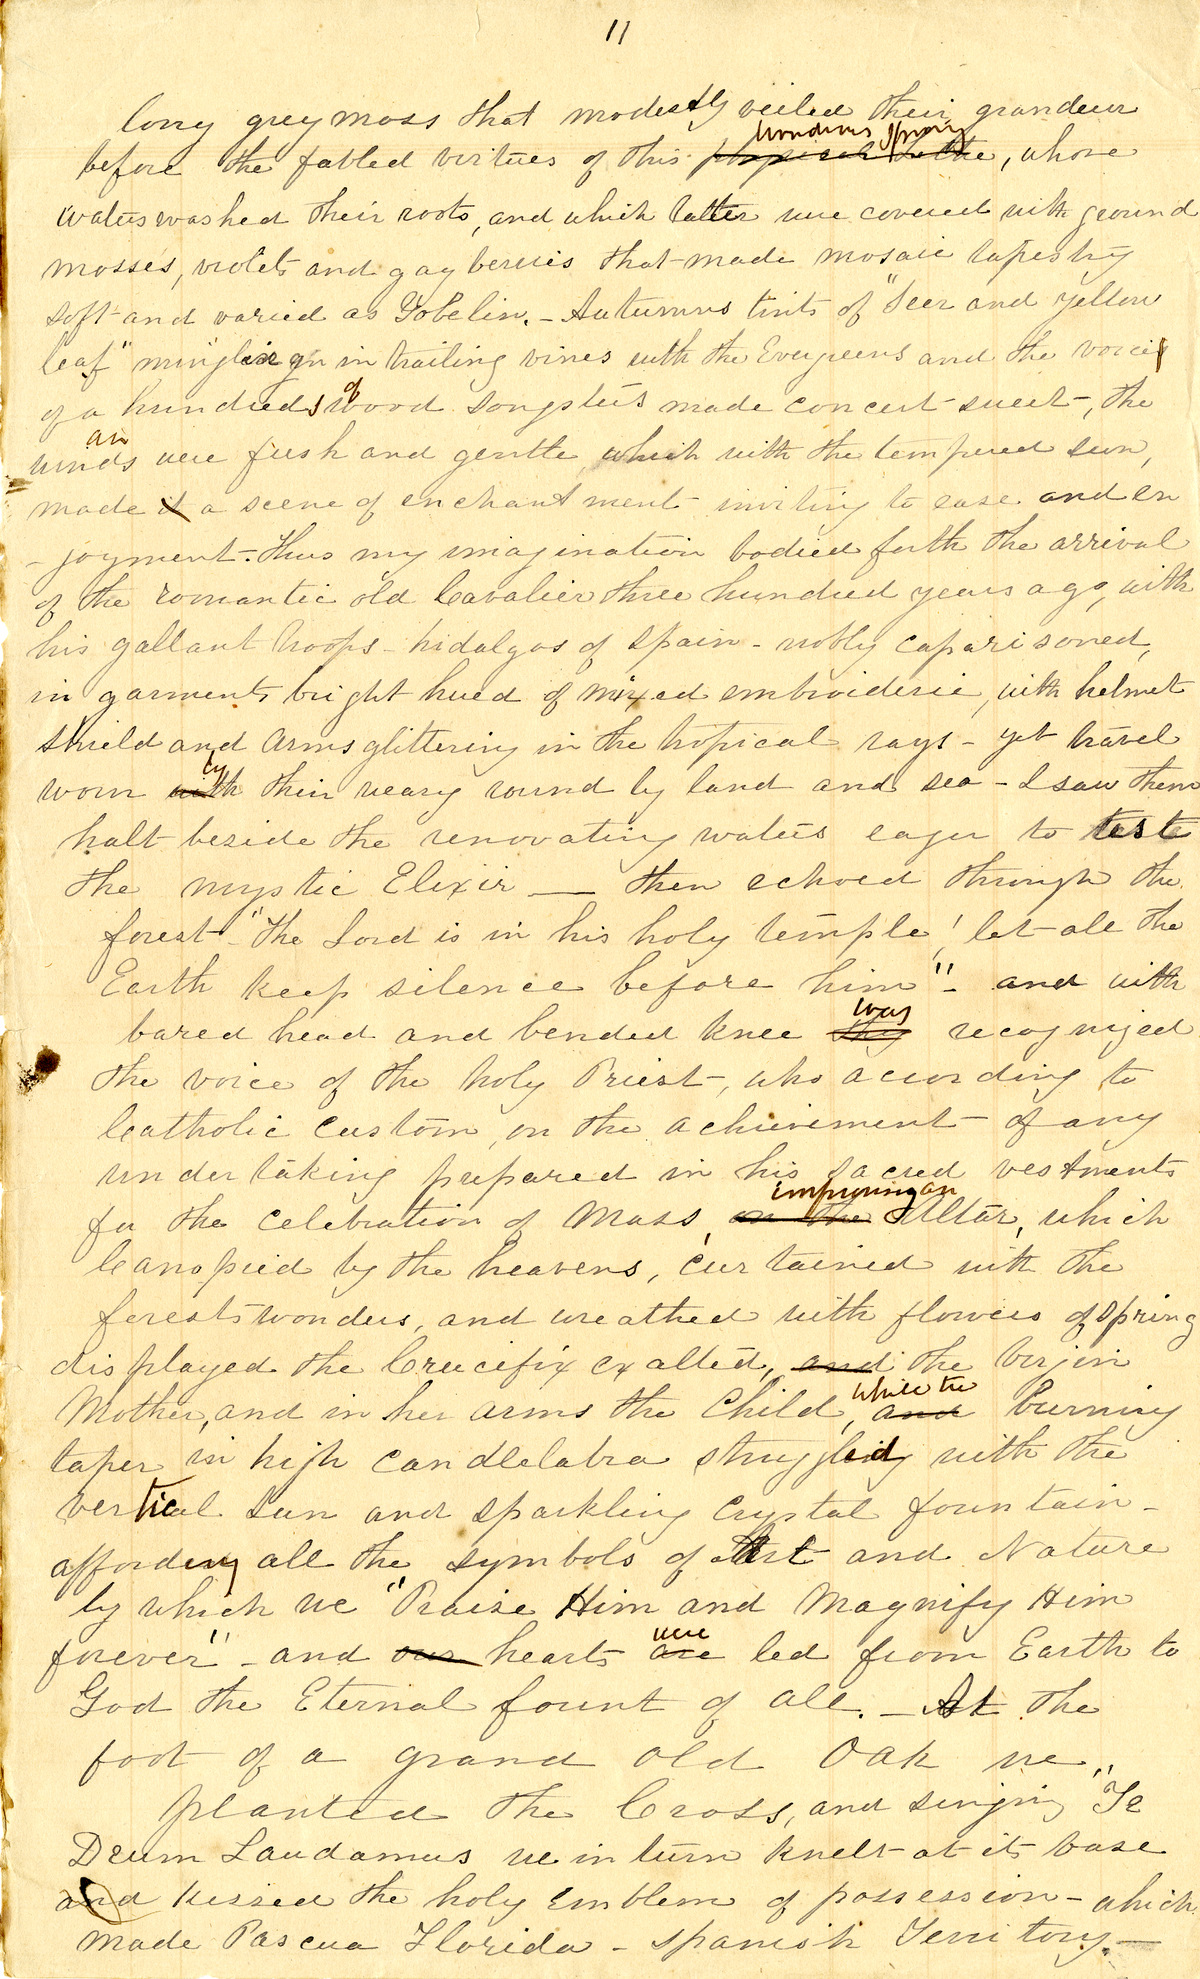 11
long grey moss that modestly veiled their grandeur
wondrous spring
before the fabled virtues of this physical Lethe, whose
waters washed their roots, and which latter were covered with ground
mosses, violets and gay berries that made mosaic tapestry
soft and varied as Gobelin. - Autumns tints of "Seer and yellow
leaf" mingling in trailing vines with the Evergreens and the voices
of
of a hundreds wood songsters made concert sweet -, the
air
winds were fresh and gentle which with the tempered sun,
made it a scene of enchantment inviting to ease and en
- joyment - Thus my imagination bodied forth the arrival
of the romantic old Cavalier three hundred years ago, with
his gallant troops - hidalgos of Spain - nobly caparisoned,
in garments bright hued of mixed embroiderie, with helmet
shield and arms glittering in the tropical rays - yet travel
by
worn with their weary round by land and sea - I saw them
halt beside the renovating waters eager to test
the mystic Elixir — then echoed through the
forest - "The Lord is in his holy temple! let all the
Earth keep silence before him" - and with
was
bared head and bended knee they recognized
the voice of the holy Priest -, who according to
Catholic custom, on the achievement of any
undertaking prepared in his sacred vestments
improvising an
for the celebration of Mass, on the Altar, which
Canopied by the heavens, curtained with the
forests wonders, and wreathed with flowers of spring
displayed the Crucifix exalted, and the Virgin
while the
Mother, and in her arms the Child, and burning
taper in high candlelabra struggled with the
vertical sun and sparkling crystal fountain -
affording all the symbols of Art and Nature
by which we "Praise Him and Magnify Him
were
forever" - and our hearts are led from Earth to
God the Eternal fount of all. - At the
foot of a grand old Oak we
planted the Cross, and singing "Te
Deum Laudamus we in turn knelt at its base
and kissed the holy emblem of possession - which
made Pascua Florida - Spanish Territory. —